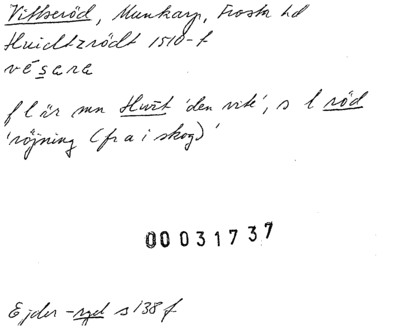 Vittseröd, Munkarp, Frosta hd
Huidtzrödt 1510-t
vésara
f l är mn Hwit 'den vite', s l röd
'röjning (fr a i skog)'
00 031737
Ejder -ryd s 138 f